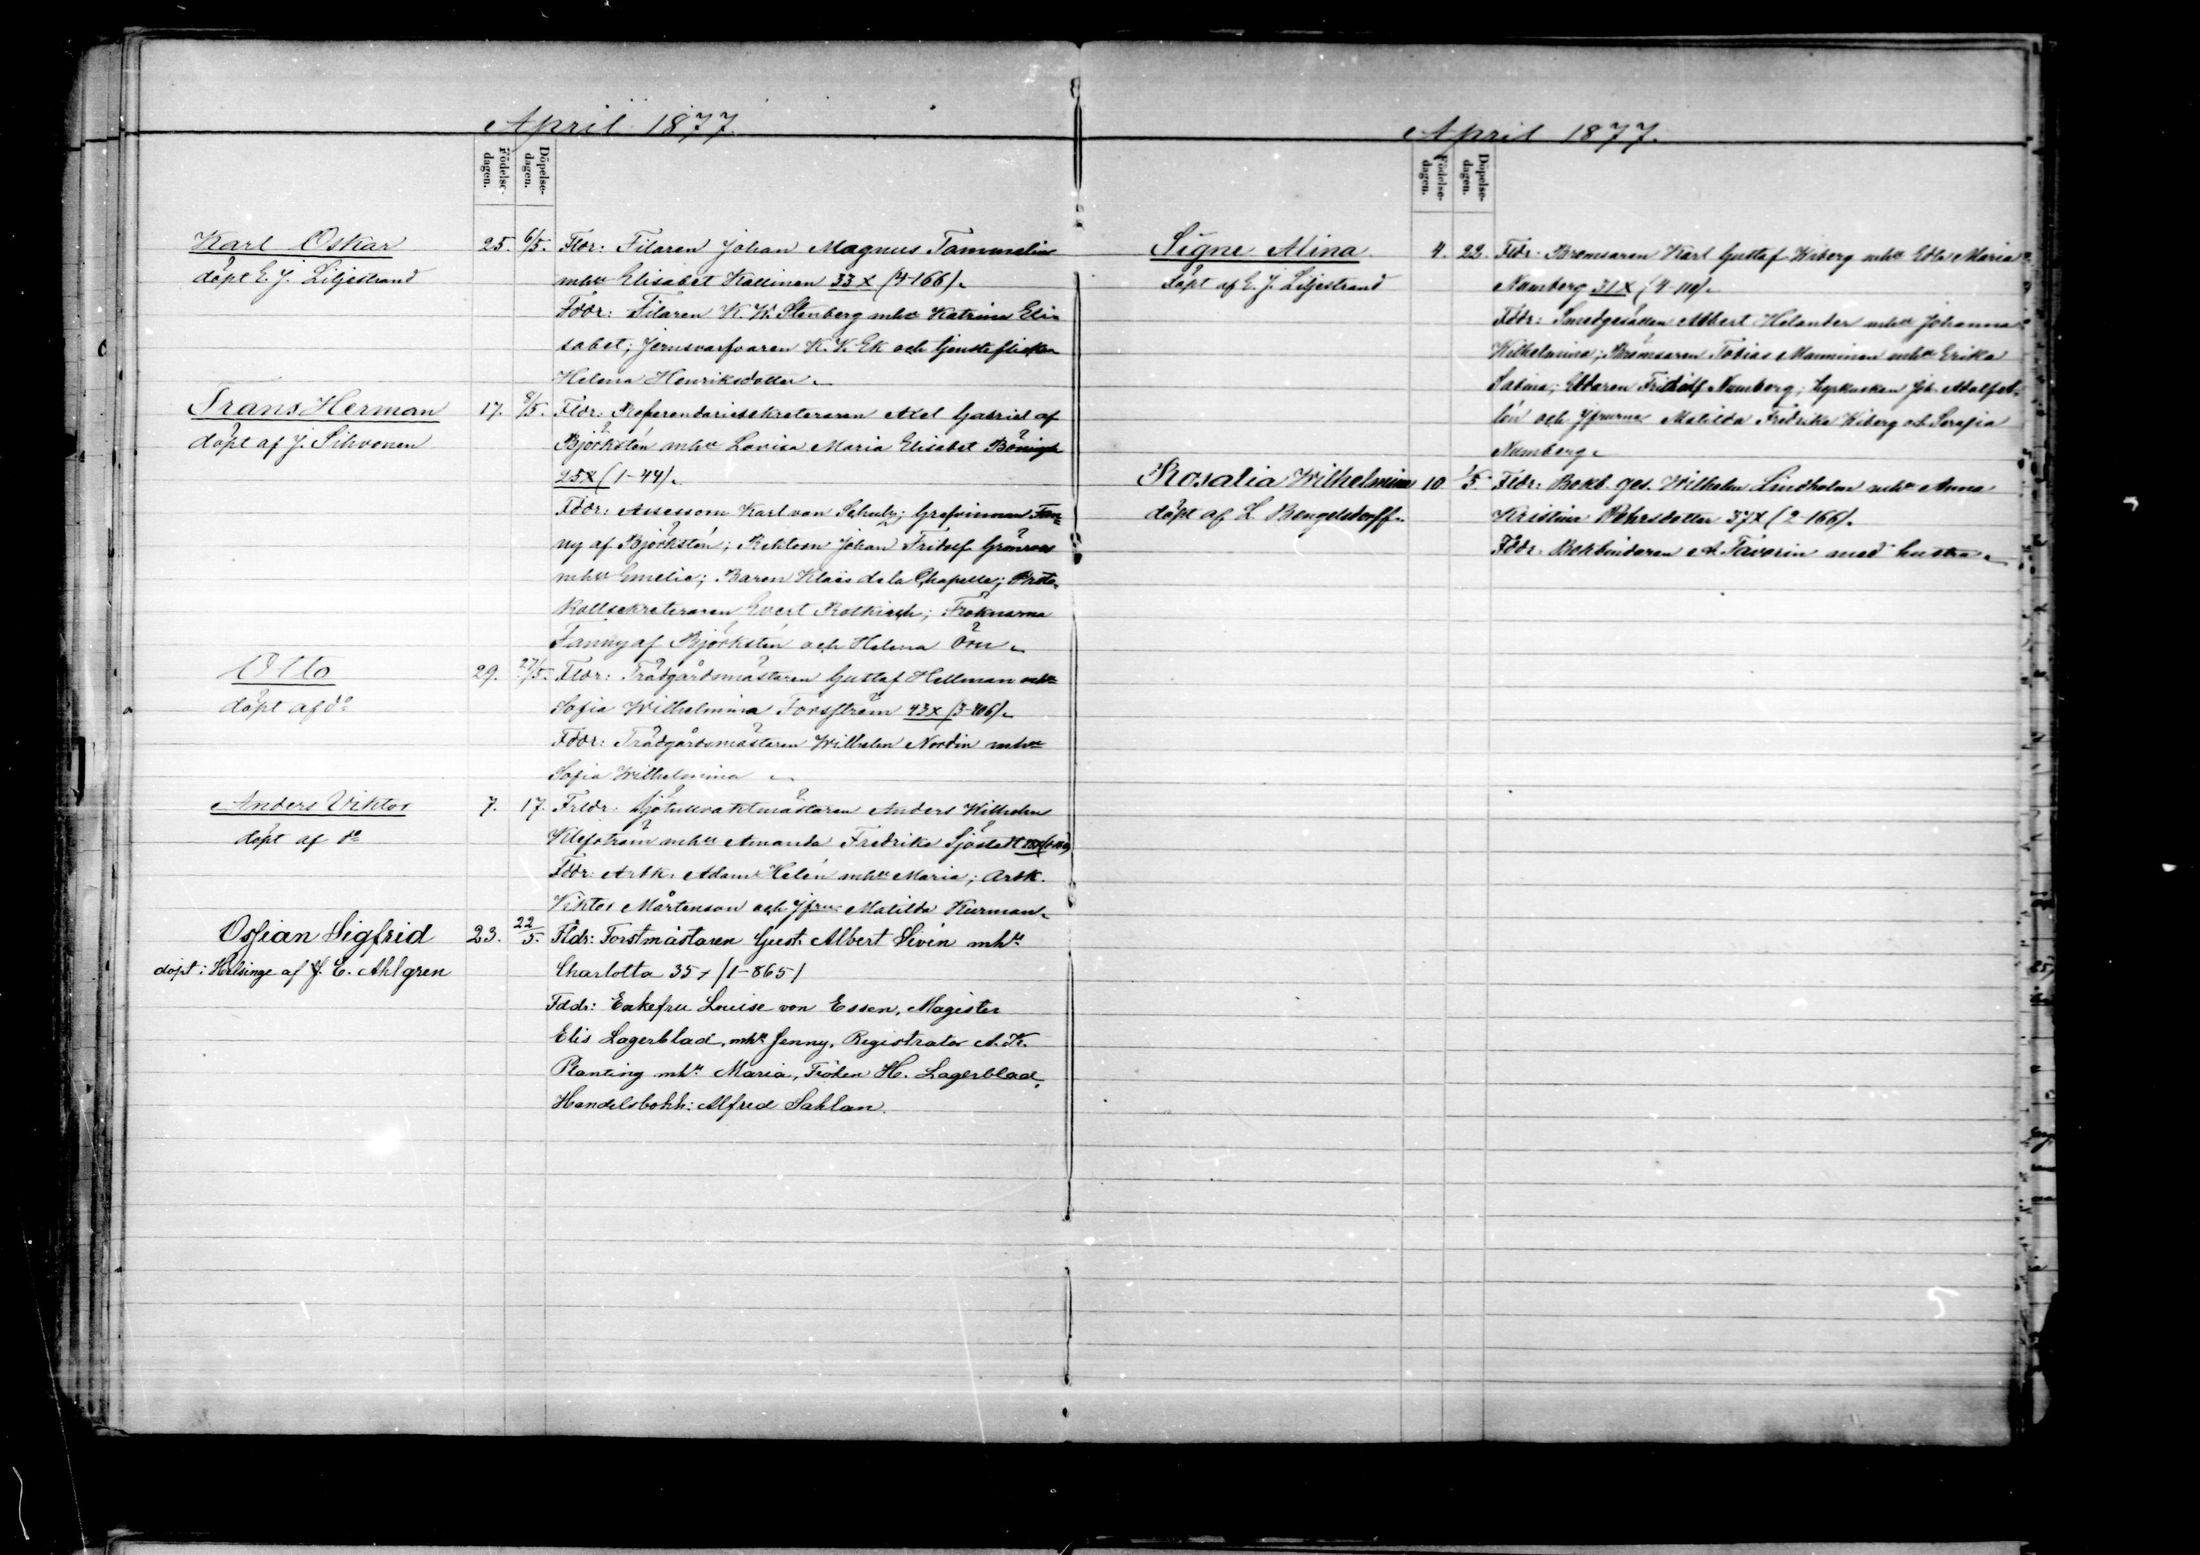 April 1877.
Födelse-
dagen.
Döpelse-
dagen.
Karl Oskar
döpt E. J. Liljestrand
25. 6/5. Fldr: Filaren Johan Magnus Tammelin
mhu Elisabet Kallinen 33 x (4-166).
Fddr: Filaren K. W. Stenberg mhu Katrina Eli-
sabet; Jernsvarfvaren K. V. Ek och tjensteflickan
Helena Henriksdotter.
Frans Herman
döpt af J. Sihvonen
17. 8/5. Fldr: Referendariesekreteraren Axel Gabriel af
Björkstén mhu Lovisa Maria Elisabet
25x (1-44).
Fddr: Assessorn Karl von Schultz; Grefvinnan Fan-
ny af Björkstén; Rektorn Johan Fridolf
mhu Emelie; Baron Klaës de la Chapelle; Proto-
kollsekreteraren Evert Rotkirch; Fröknarna
Fanny af Björkstén och Helena Örn.
Otto
döpt af do
29. 27/5. Fldr: Trädgårdsmästaren Gustaf Hellman mhu
Sofia Wilhelmina Forsström 43x (3-406).
Fddr: Trädgårdsmästaren Wilhelm Nordin mhu
Sofia Wilhelmina
Anders Viktor
döpt af do
7. 17. Frldr: Sjötullvaktmästaren Anders Wilhelm
Klefström mhu Amanda Fredrika Sjöstedt
Fddr: Arbk. Adam Helén mhu Maria; Arbk.
Viktor Mårtenson och Jfru Matilda Kurman.
Ossian Sigfrid
döpt i Helsinge af J. E. Ahlgren
23. 22/5. Fldr: Forstmästaren Gust. Albert Sivén mhu
Charlotta 35 x (1-865)
Fddr: Enkefru Louise von Essen, Magister
Elis Lagerblad, mhu Jenny, Registrator A. K.
Planting mhu Maria, Fröken H. Lagerblad,
Handelsbokh: Alfred Sahlan.
April 1877.
Födelse-
dagen.
Döpelse-
dagen.
Signe Alina
döpt af E. J. Liljestrand
4. 22. Fldr: Bromsaren Karl Gustaf Wiberg mhu Edla Maria
Numberg 31X (4-110).
Fddr: Smedgesällen Albert Helander mhu Johanna
Wilhelmina; Bromsaren Tobias Manninen mhu Erika
Sabina; Eldaren Fridolf Numberg; Joh. Adolf
lén och Jfrurna Matilda Fredrika Wiberg och Serafia
Numberg.
Rosalia Wilhelmina
döpt af L. Bengelsdorff.
10. 1/5. Fldr: Bokb. ges. Wilhelm Lindholm mhu Anna
Kristina Pehrsdotter 37X (2-166).
Fddr: Bokbindaren A. Faverin med hustru.